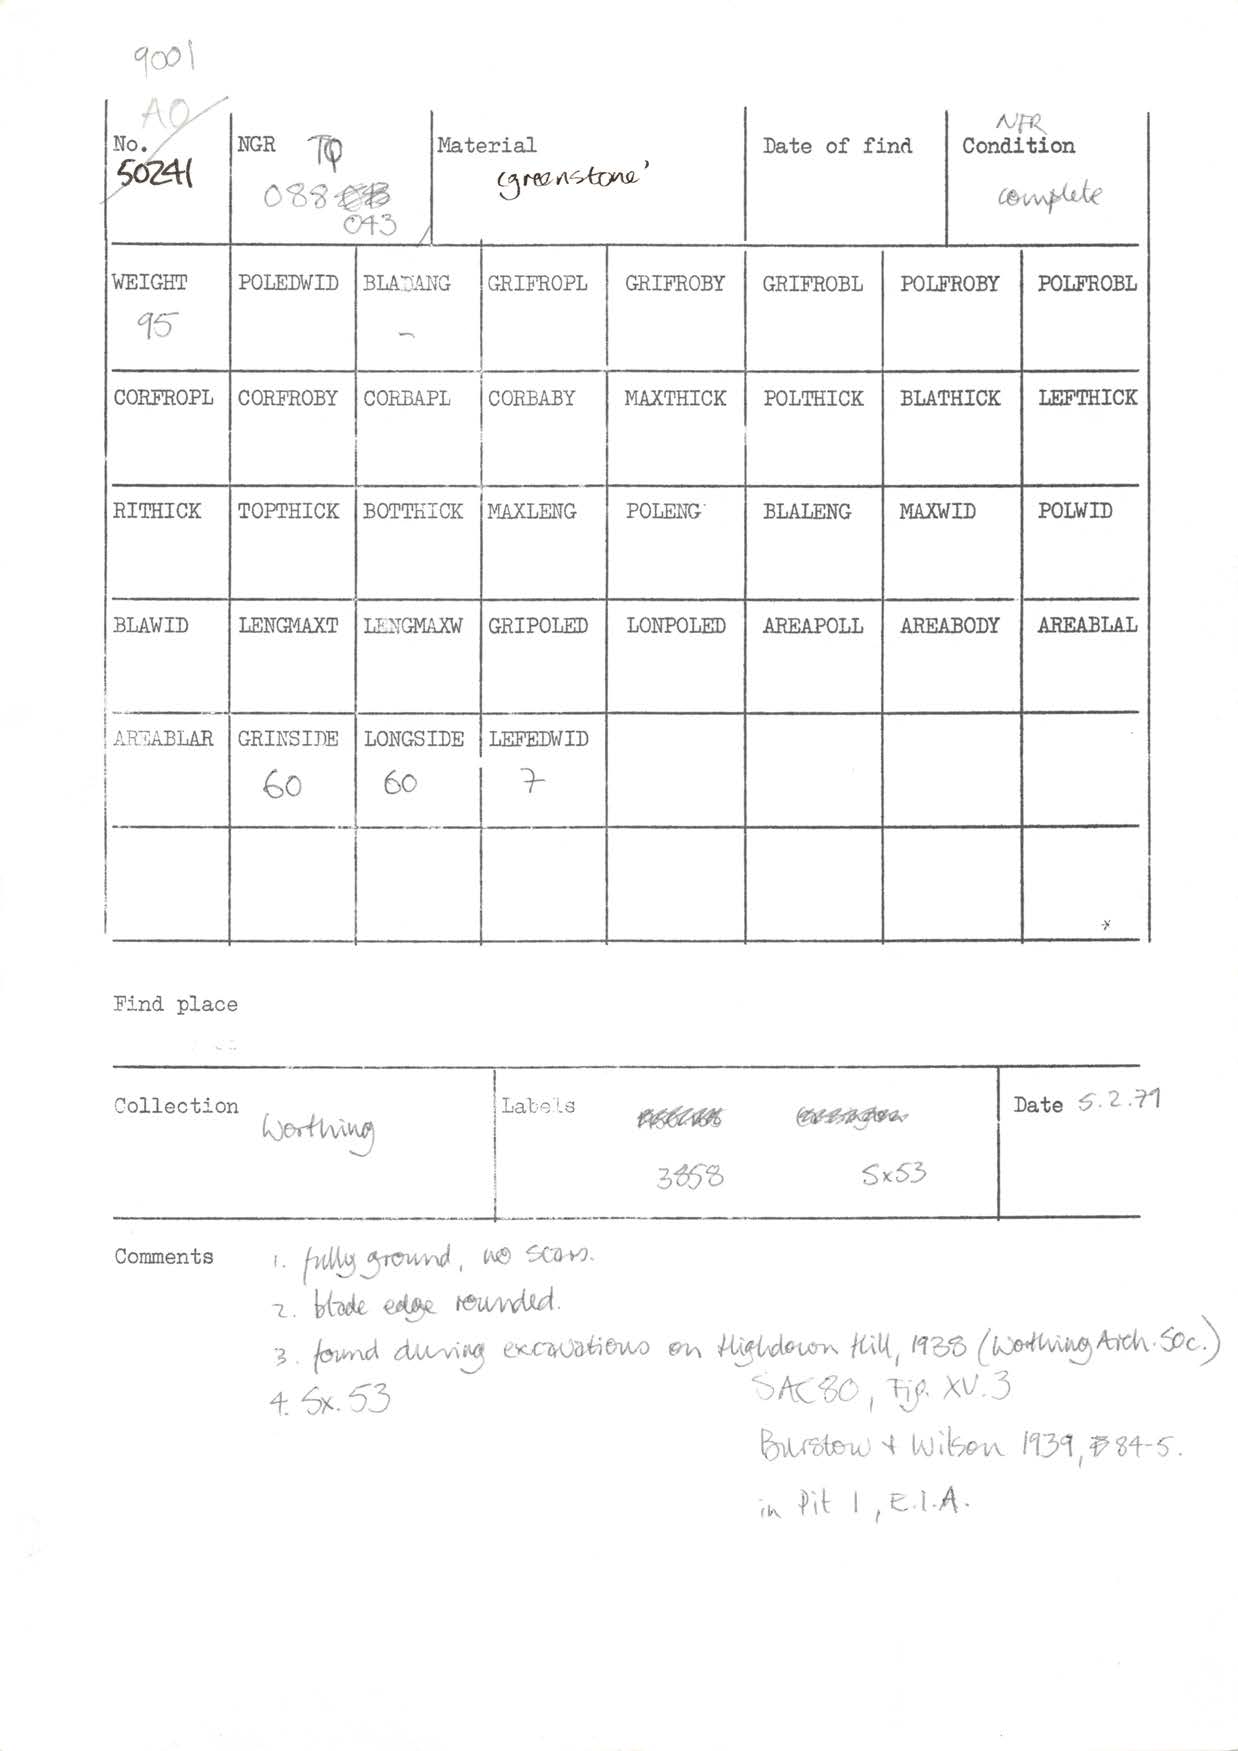 9001
AO
No. NGR TQ Material Date of find NFR Condition
50241 088 043 'greenstone' complete
WEIGHT POLEDWID BLADANG GRIFROPL GRIFROBY GRIFROBL POLFROBY POLFROBL
95 -
CORFROPL CORFROBY CORBAPL CORBABY MAXTHICK POLTHICK BLATHICK LEFTHICK
RITHICK TOPTHICK BOTTHICK MAXLENG POLENG BLALENG MAXWID POLWID
BLAWID LENGMAXT LENGMAXW GRIPOLED LONPOLED AREAPOLL AREABODY AREABLAL
AREABLAR GRINSIDE LONGSIDE LEFEDWID
60 60 7
Find place
Collection Worthing Labels Date 5.2.79
3858 Sx53
Comments 1. fully ground, no scars.
2. blade edge rounded.
3. found during excavations on Highdown Hill, 1938 (Worthing Arch. Soc.)
4. Sx. 53 SAC 80, Fig. XV.3
Burstow + Wilson 1939, 84-5.
in Pit 1, E.I.A.